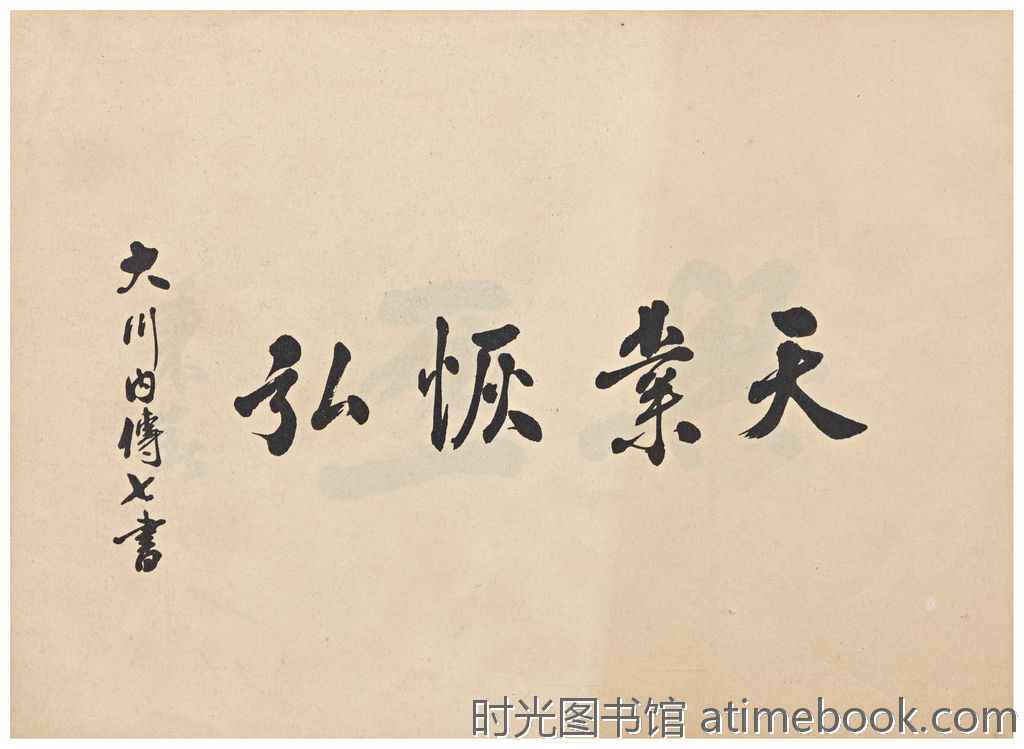 天業恢弘
大川内傳七書
时光图书馆 atimebook.com